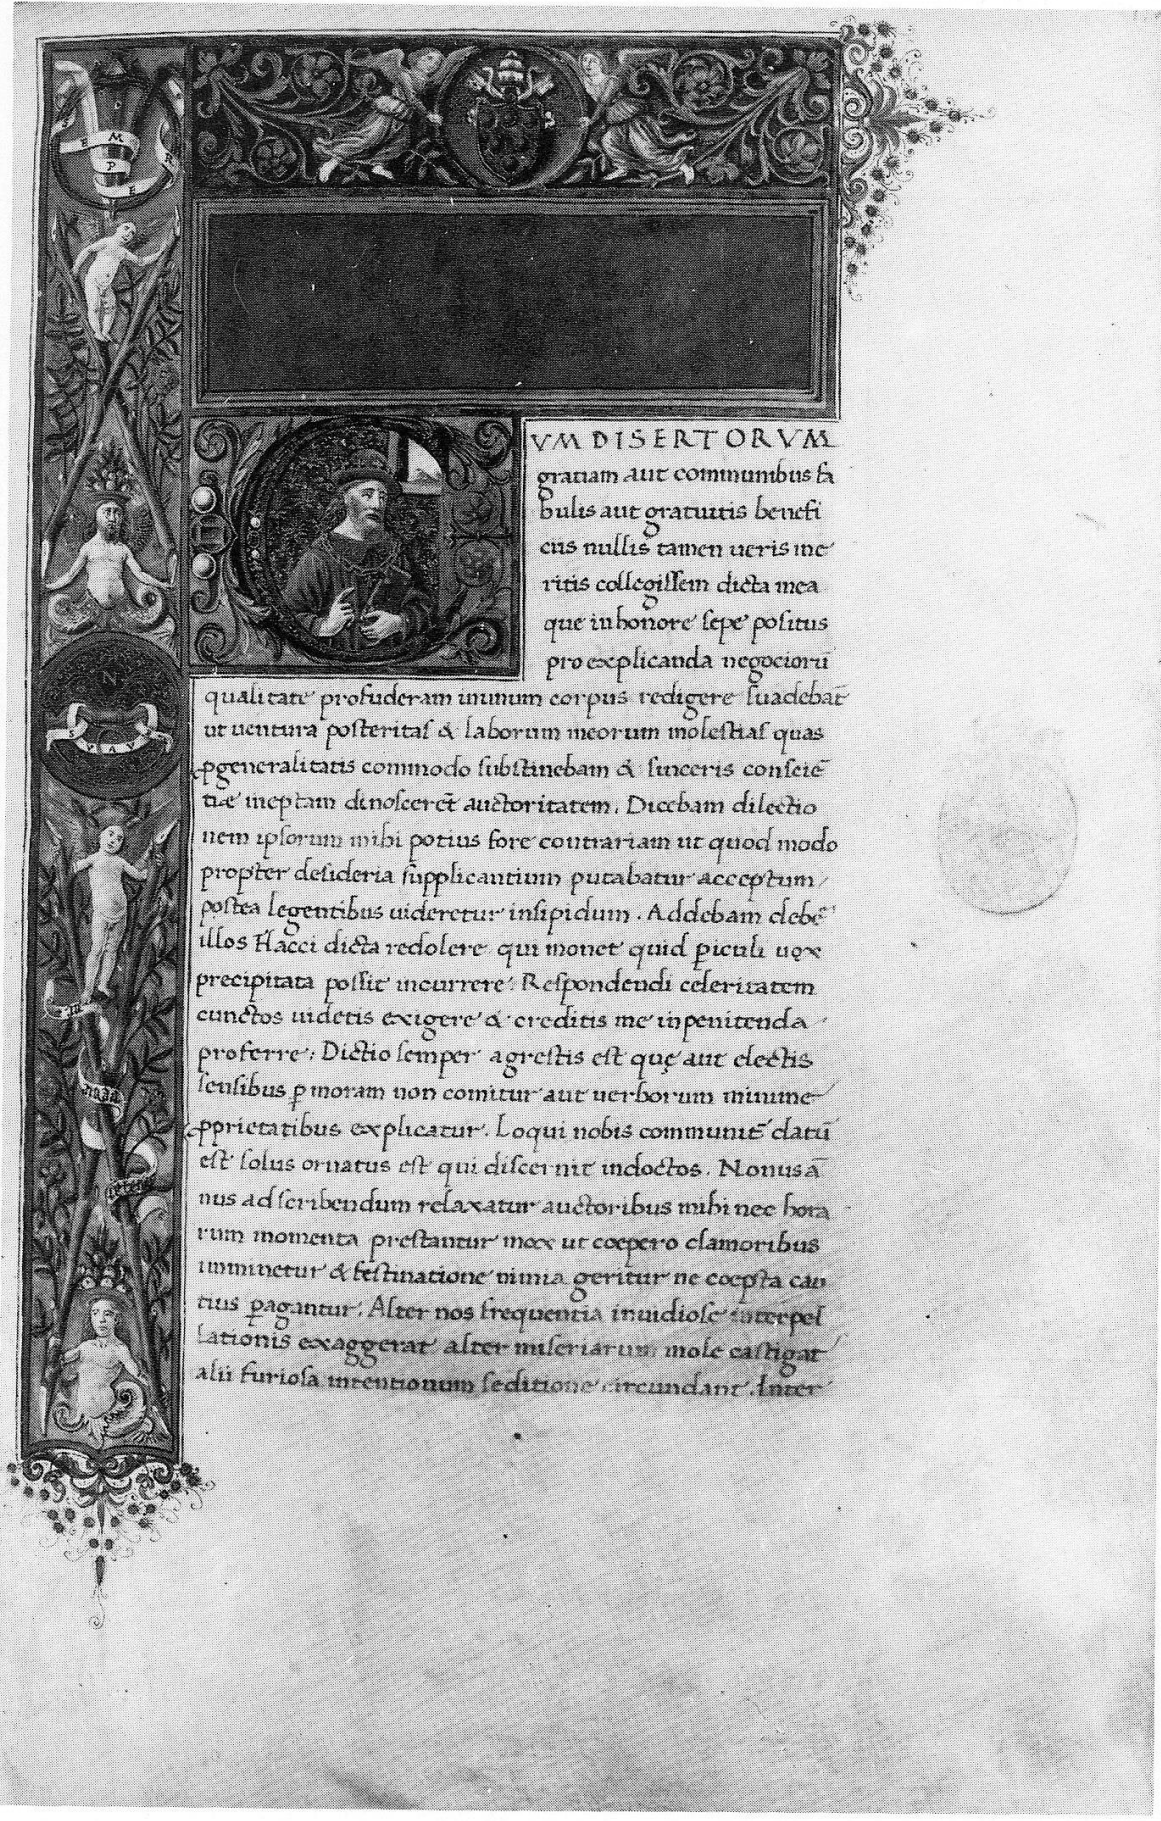 SEMPER
VM DISERTORVM
gratiam aut communibus fa
bulis aut gratuitis benefi
ciis nullis tamen ueris me
ritis collegissem dicta mea
que in honore sepe positus
pro explicanda negocioru᷑
qualitate profuderam in unum corpus redigere suadeba᷑t
ut uentura posteritas & laborum meorum molestias quas
ꝓ generalitatis commodo substinebam & sinceris conscie᷑
tiæ ineptam dinoscere᷑t auctoritatem. Dicebam dilectio
nem ipsorum mihi potius fore contrariam ut quod modo
propter desideria supplicantium putabatur acceptum/
postea legentibus uideretur insipidum. Addebam debe᷑
illos Flacci dicta redolere qui monet quid ꝑiculi uox
precipitata possit incurrere: Respondendi celeritatem
cunctos uidetis exigere & creditis me inpenitenda
proferre: Dictio semper agrestis est quę aut electis
sensibus ꝑ moram non comitur aut uerborum minime
ꝓprietatibus explicatur. Loqui nobis communit᷑ datu᷑
est solus ornatus est qui discernit indoctos. Nonus a᷑
nus ad scribendum relaxatur auctoribus mihi nec hora
rum momenta prestantur mox ut coepero clamoribus
imminetur & festinatione nimia geritur ne coepta cau
tius ꝑagantur: Alter nos frequentia inuidiose interpel
lationis exaggerat alter miseriarum mole castigat
alii furiosa intentionum seditione circundant. Inter
N
SVAV